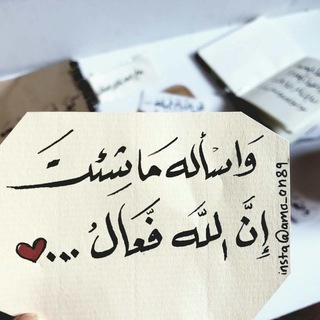 وَاسْأله مَا شِئتَ
إِنَّ اللَّه فَعَّالُ ...
insta@ama_on89